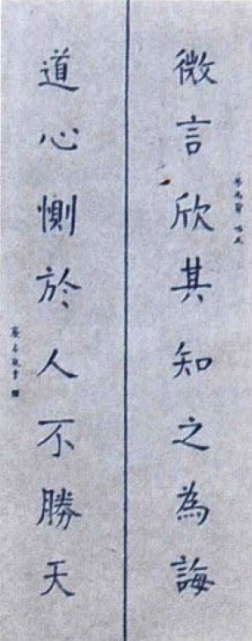 微言欣其知之為誨
道心惻於人不勝天